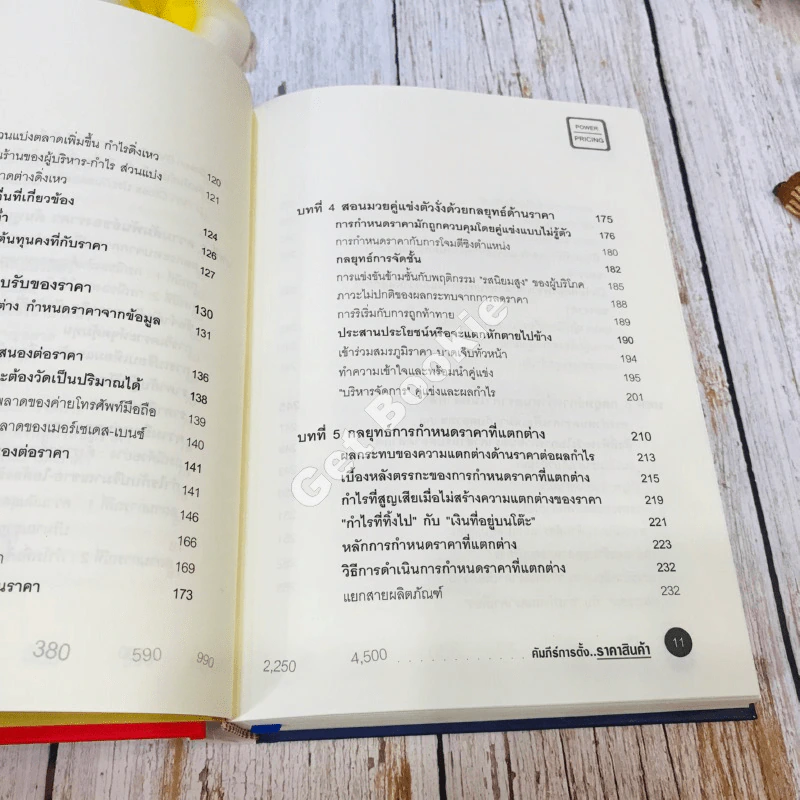 วนแบ่งตลาดเพิ่มขึ้น กำไรดิ่งเหว 120
นร้านของผู้บริหาร-กำไร ส่วนแบ่ง
าดต่างดิ่งเหว 121
ื่นที่เกี่ยวข้อง
ต่ำ 124
ต้นทุนคงที่กับราคา 126
127
บรับของราคา 130
ต่าง กำหนดราคาจากข้อมูล 131
สนองต่อราคา 136
ะต้องวัดเป็นปริมาณได้ 138
ตลาดของค่ายโทรศัพท์มือถือ 139
ลาดของเมอร์เซเดส-เบนซ์ 140
องต่อราคา 141
141
146
166
169
นราคา 173
380 590 990
POWER
PRICING
บทที่ 4 สอนมวยคู่แข่งตัวงั่งด้วยกลยุทธ์ด้านราคา 175
การกำหนดราคามักถูกควบคุมโดยคู่แข่งแบบไม่รู้ตัว 176
การกำหนดราคากับการโจมตีชิงตำแหน่ง 180
กลยุทธ์การจัดชั้น 182
การแข่งขันข้ามชั้นกับพฤติกรรม "รสนิยมสูง" ของผู้บริโภค 185
ภาวะไม่ปกติของผลกระทบจากการลดราคา 188
การริเริ่มกับการถูกท้าทาย 189
ประสานประโยชน์หรือจะแตกหักตายไปข้าง 190
เข้าร่วมสมรภูมิราคา บาดเจ็บทั่วหน้า 194
ทำความเข้าใจและพร้อมนำคู่แข่ง 195
"บริหารจัดการ" คู่แข่งและผลกำไร 201
บทที่ 5 กลยุทธ์การกำหนดราคาที่แตกต่าง 210
ผลกระทบของความแตกต่างด้านราคาต่อผลกำไร 213
เบื้องหลังตรรกะของการกำหนดราคาที่แตกต่าง 215
กำไรที่สูญเสียเมื่อไม่สร้างความแตกต่างของราคา 219
"กำไรที่ทิ้งไป" กับ "เงินที่อยู่บนโต๊ะ" 221
หลักการกำหนดราคาที่แตกต่าง 223
วิธีการดำเนินการกำหนดราคาที่แตกต่าง 232
แยกสายผลิตภัณฑ์ 232
2,250 4,500 . . . . . . . . . . คัมภีร์การตั้ง..ราคาสินค้า 11
Get Bookie